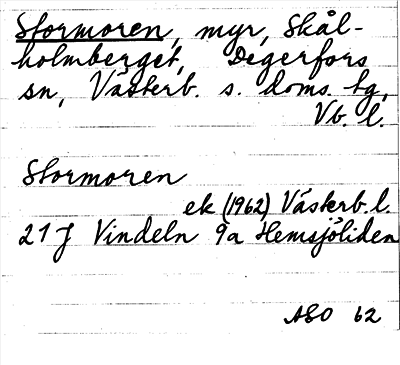 Stormoren, myr, Skål-
holmberget, Degerfors
sn, Västerb. s. doms. tg,
Vb. l.
Stormoren
ek (1962) Västerb. l.
21 J Vindeln 9a Hemsjöliden
ASO 62